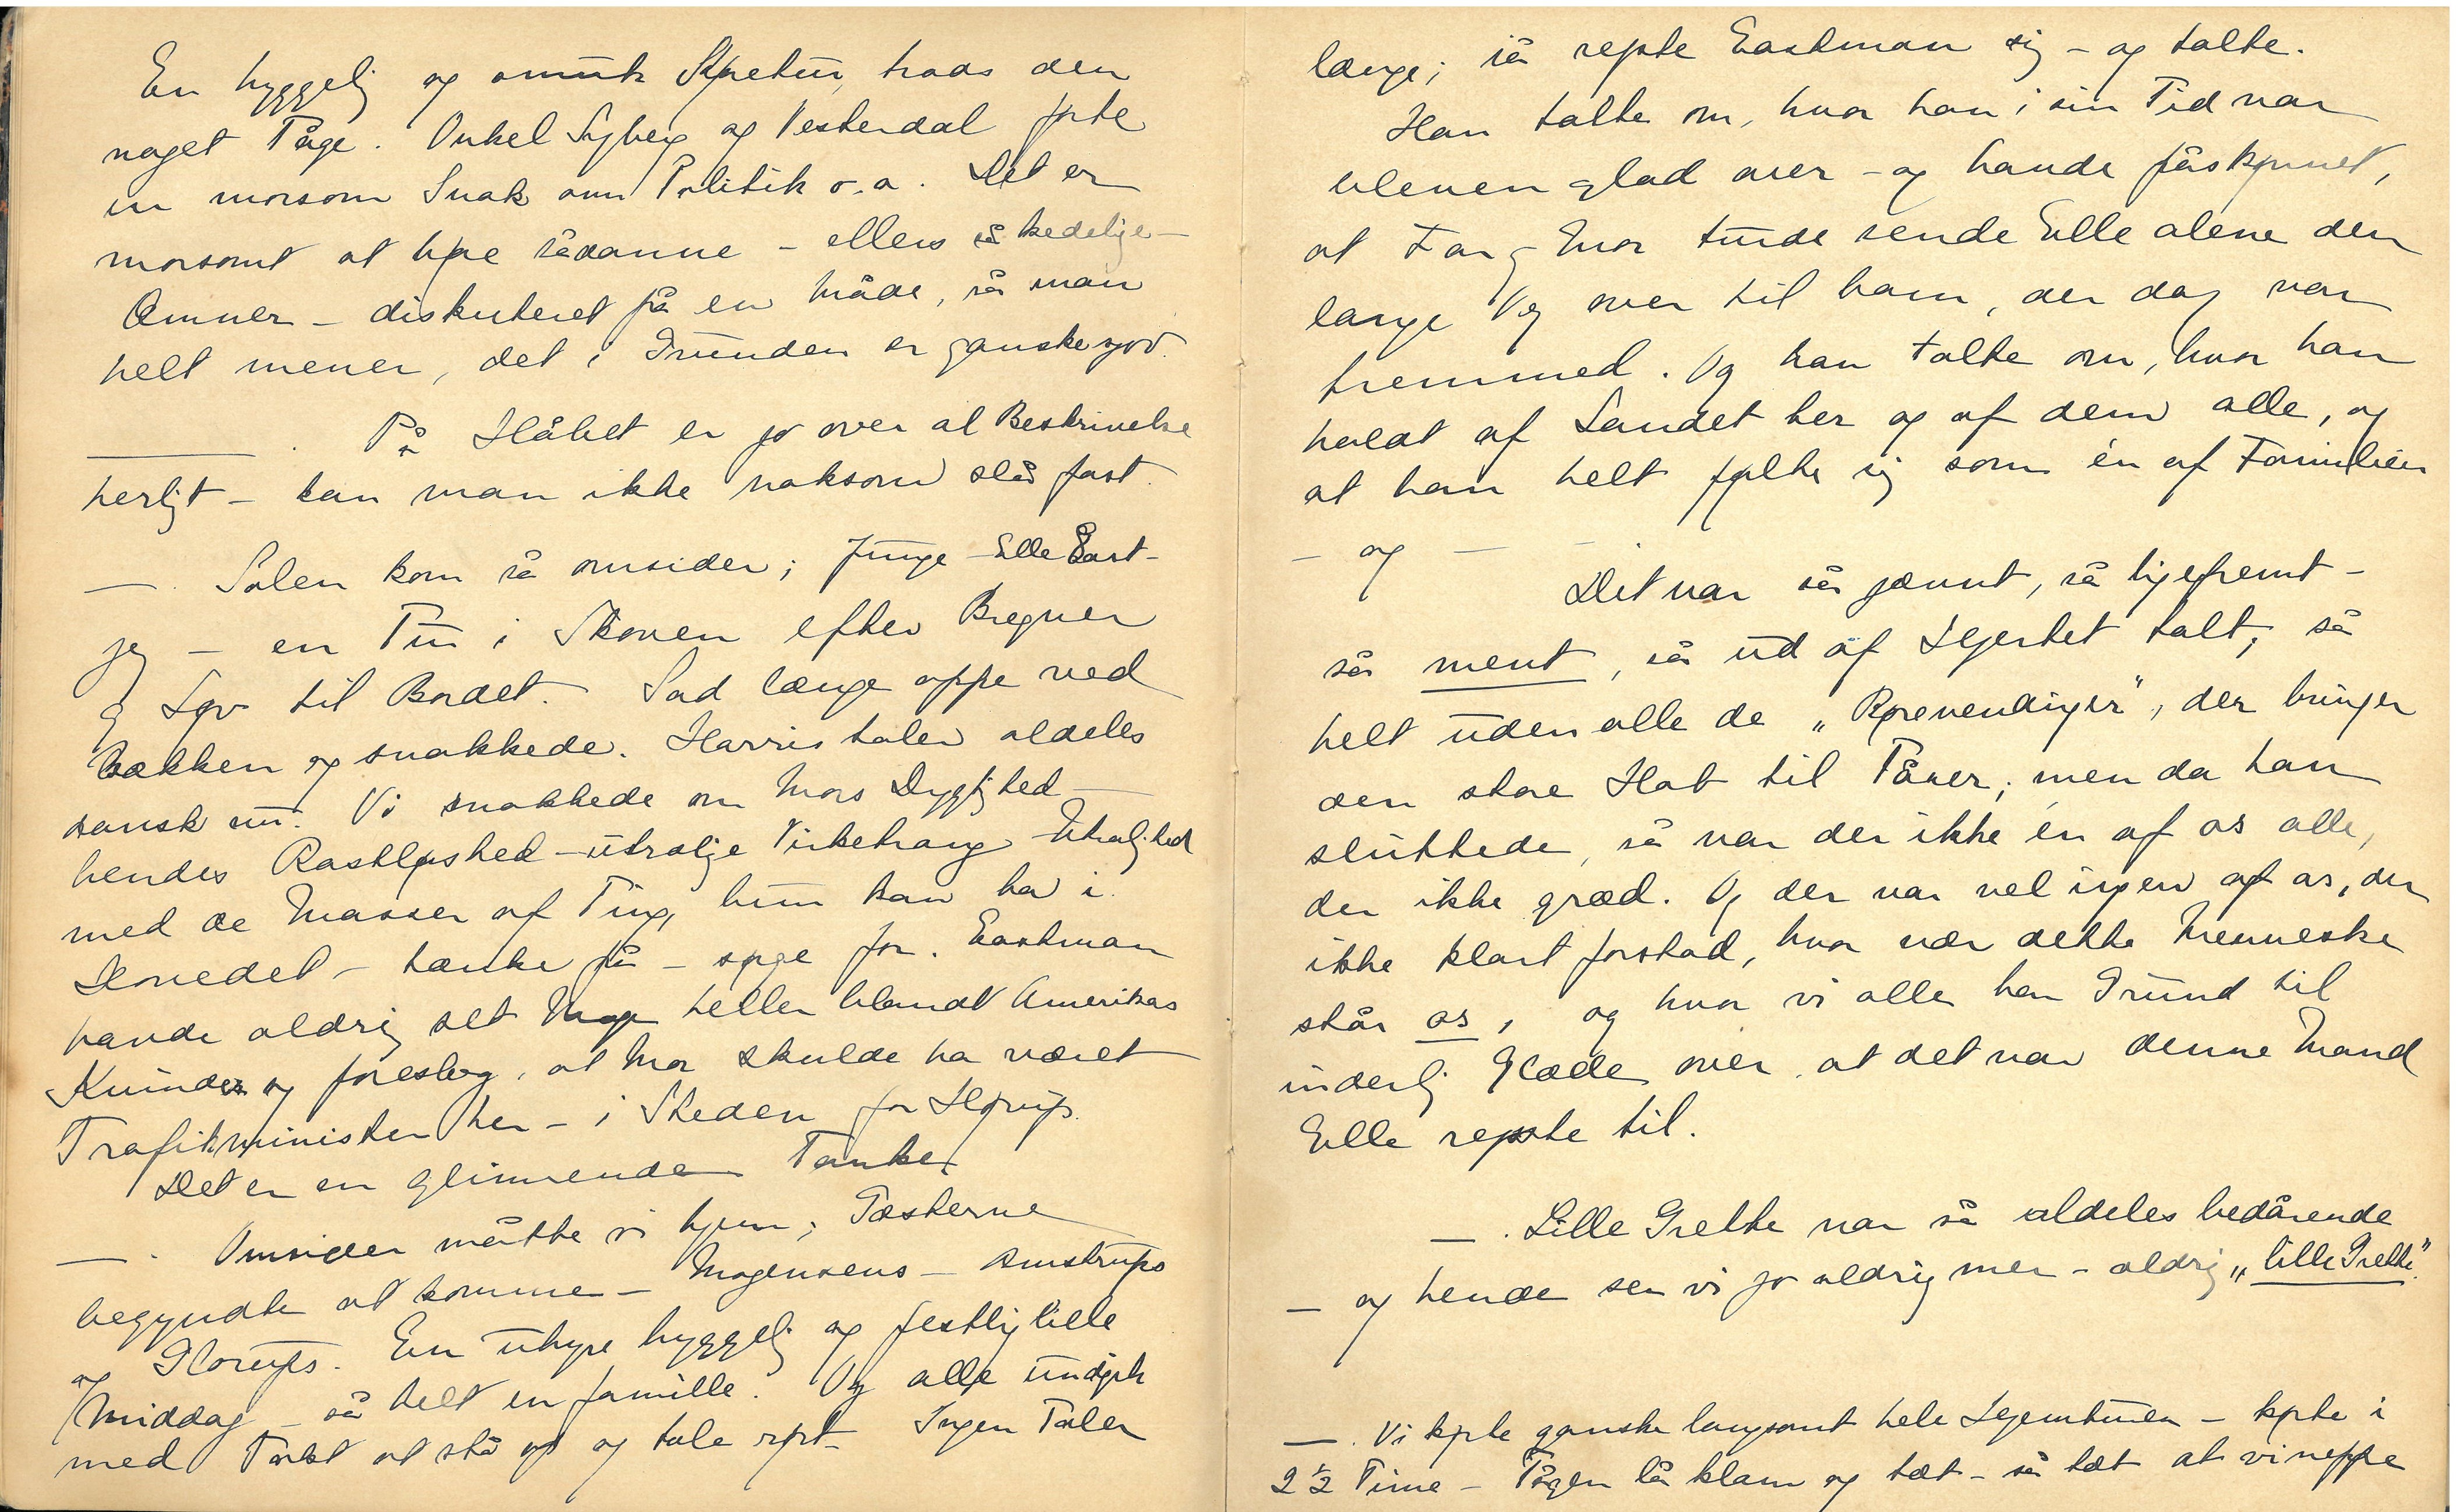 En hyggelig og smuk Køretur, trods den
noget Tåge. Onkel Syberg og Vesterdal førte
en morsom Snak om Politik o.a. Det er
morsomt at høre sådanne – ellers så kedelige –
Æmner – diskuteret på en Måde, så man
helt mener, det i Grunden er ganske sjov.
På Håbet er jo over al Beskrivelse
herligt – kan man ikke noksom slå fast.
— . Solen kom så omsider; Junge – Elle East-
jeg – en Tur i Skoven efter Bregner
og Løv til Bordet. Sad længe oppe ved
Bækken og snakkede. Harris taler aldeles
dansk nu. Vi snakkede om Mors Dygtighed –
hendes Rastløshed – utrolige Virketrang – Utrolighed
med de Masser af Ting, hun kan ha i
Hovedet – tænke på – sørge for. Eastman
havde aldrig set Mage heller blandt Amerikas
Kvinder og foreslog, at Mor skulde ha været
Trafikminister her – i Steden for Hørup.
Det er en glimrende Tanke.
— . Omsider måtte vi hjem; Gæsterne
begyndte at komme – Mogensens – Amstrups
og Glorups. En uhyre hyggelig og festlig lille
Middag – så helt en famille. Og alle undgik
med Takt at stå op og tale rørt – Ingen Taler
længe; så rejste Eastman sig – og talte.
Han talte om, hvor han i sin Tid var
bleven glad over – og havde påskønnet,
at Far og Mor turde sende Elle alene den
lange Vej over til ham, der dog var
fremmed. Og han talte om, hvor han
holdt af Landet her og af dem alle, og
at han helt følte sig som én af Familien
– og – – .
Det var så jævnt, så ligefremt –
så ment, så ud af Hjertet talt, så
helt uden alle de „Rørevendinger", der bringer
den store Hob til Tårer; men da han
sluttede, så var der ikke én af os alle,
der ikke græd. Og der var vel ingen af os, der
ikke klart forstod, hvor nær dette Menneske
står os, og hvor vi alle har Grund til
inderlig Glæde over, at det var denne Mand
Elle rejste til.
— . Lille Grethe var så aldeles bedårende
– og hende ser vi jo aldrig mer – aldrig „lille Grethe".
— . Vi kørte ganske langsomt hele Hjemturen – kørte i
2 ½ Time – Tågen lå klam og tæt – så tæt at vi neppe